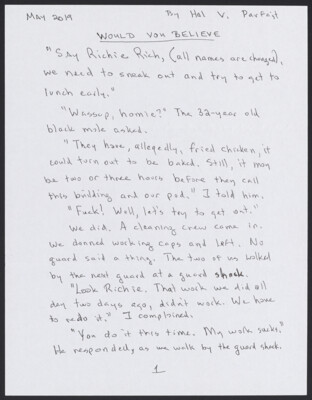 May 2019
By Hal V. Parfait
WOULD YOU BELIEVE
"Say Richie Rich, (all names are changed),
we need to sneak out and try to get to
lunch early."
"Wassup, homie?" The 32-year old
black male asked.
"They have, allegedly, fried chicken, it
could turn out to be baked. Still, it may
be two or three hours before they call
this building and our pod." I told him.
"Fuck! Well, let's try to get out."
We did. A cleaning crew came in.
We donned working caps and left. No
guard said a thing. The two of us walked
by the next guard at a guard shack.
"Look Richie. That work we did all
day two days ago, didn't work. We have
to redo it." I complained.
"You do it this time. My work sucks."
He responded, as we walk by the guard shack.
1